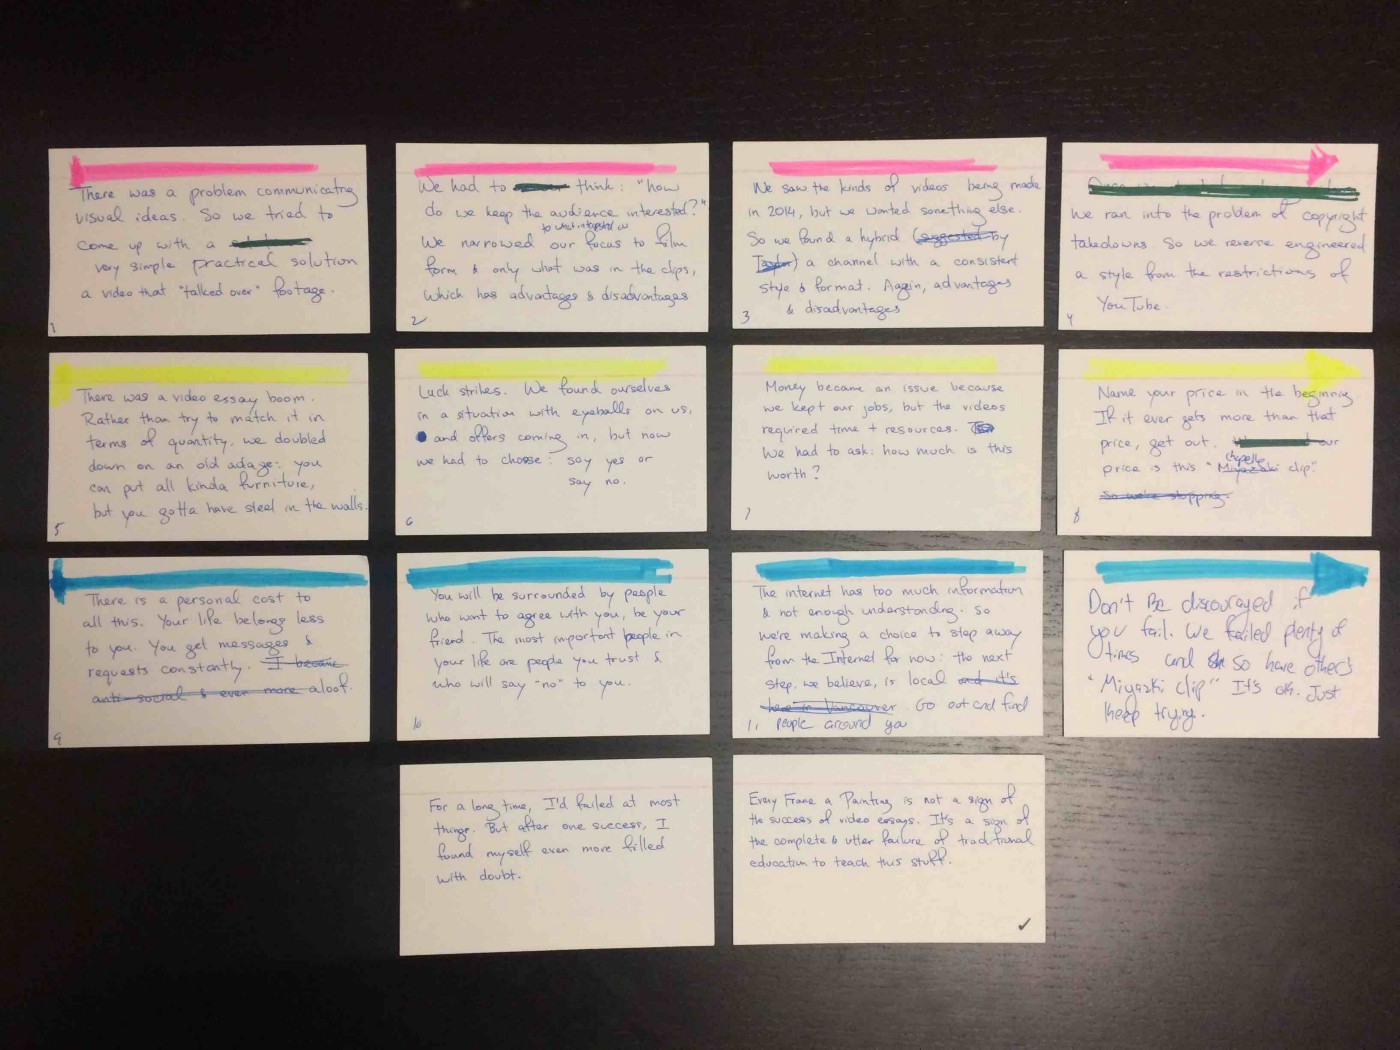 There was a problem communicating
visual ideas. So we tried to
come up with a
very simple practical solution
a video that "talked over" footage.
1
We had to think: "how
do we keep the audience interested?"
We narrowed our focus to film
form & only what was in the clips,
which has advantages & disadvantages
2
We saw the kinds of videos being made
in 2014, but we wanted something else.
So we found a hybrid (suggested by
Taylor) a channel with a consistent
style & format. Again, advantages
& disadvantages
3
We ran into the problem of copyright
takedowns. So we reverse engineered
a style from the restrictions of
YouTube.
4
There was a video essay boom.
Rather than try to match it in
terms of quantity, we doubled
down on an old adage: you
can put all kinda furniture,
but you gotta have steel in the walls.
5
Luck strikes. We found ourselves
in a situation with eyeballs on us,
and offers coming in, but now
we had to choose: say yes or
say no.
6
Money became an issue because
we kept our jobs, but the videos
required time + resources.
We had to ask: how much is this
worth?
7
Name your price in the beginning
If it ever gets more than that
price, get out. our
Chapelle
price is this "Miyazaki clip."
So we're stopping.
8
There is a personal cost to
all this. Your life belongs less
to you. You get messages &
requests constantly. I became
anti-social & even more aloof.
9
You will be surrounded by people
who want to agree with you, be your
friend. The most important people in
your life are people you trust &
who will say "no" to you.
10
The internet has too much information
& not enough understanding. So
we're making a choice to step away
from the Internet for now: the next
step, we believe, is local and it's
here in Vancouver. Go out and find
people around you
11
Don't Be discouraged if
you fail. We failed plenty of
times and so have others
"Miyazki clip" It's ok. Just
keep trying.
For a long time, I'd failed at most
things. But after one success, I
found myself even more filled
with doubt.
Every Frame a Painting is not a sign of
the success of video essays. It's a sign of
the complete & utter failure of traditional
education to teach this stuff.